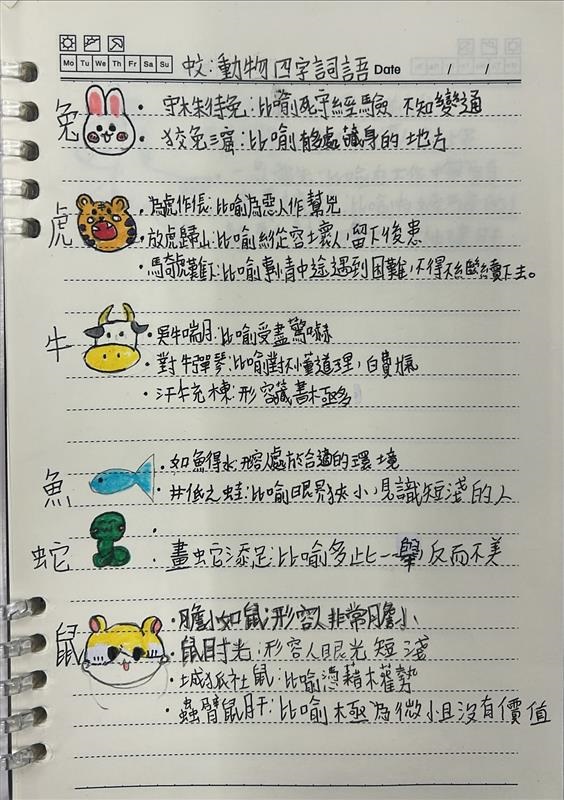 Mo Tu We Th Fr Sa Su
蚊:動物四字詞語 Date / /
兔
· 守株待兔:比喻死守經驗 不知變通
· 狡兔三窟:比喻有多處藏身的地方
虎
· 為虎作倀:比喻為惡人作幫兇
· 放虎歸山:比喻縱容壞人,留下後患
· 騎虎難下:比喻事情中途遇到困難,不得不繼續下去。
牛
· 吳牛喘月:比喻受盡驚嚇
· 對牛彈琴:比喻對不懂道理,白費氣
· 汗牛充棟:形容藏書極多
魚
· 如魚得水:形容人處於合適的環境
· 井底之蛙:比喻眼界狹小,見識短淺的人
蛇
·
畫蛇添足:比喻多此一舉,反而不美
鼠
· 膽小如鼠:形容人非常膽小
· 鼠目寸光:形容人眼光短淺
· 城狐社鼠:比喻憑藉權勢
· 蟲臂鼠肝:比喻極為微小且沒有價值